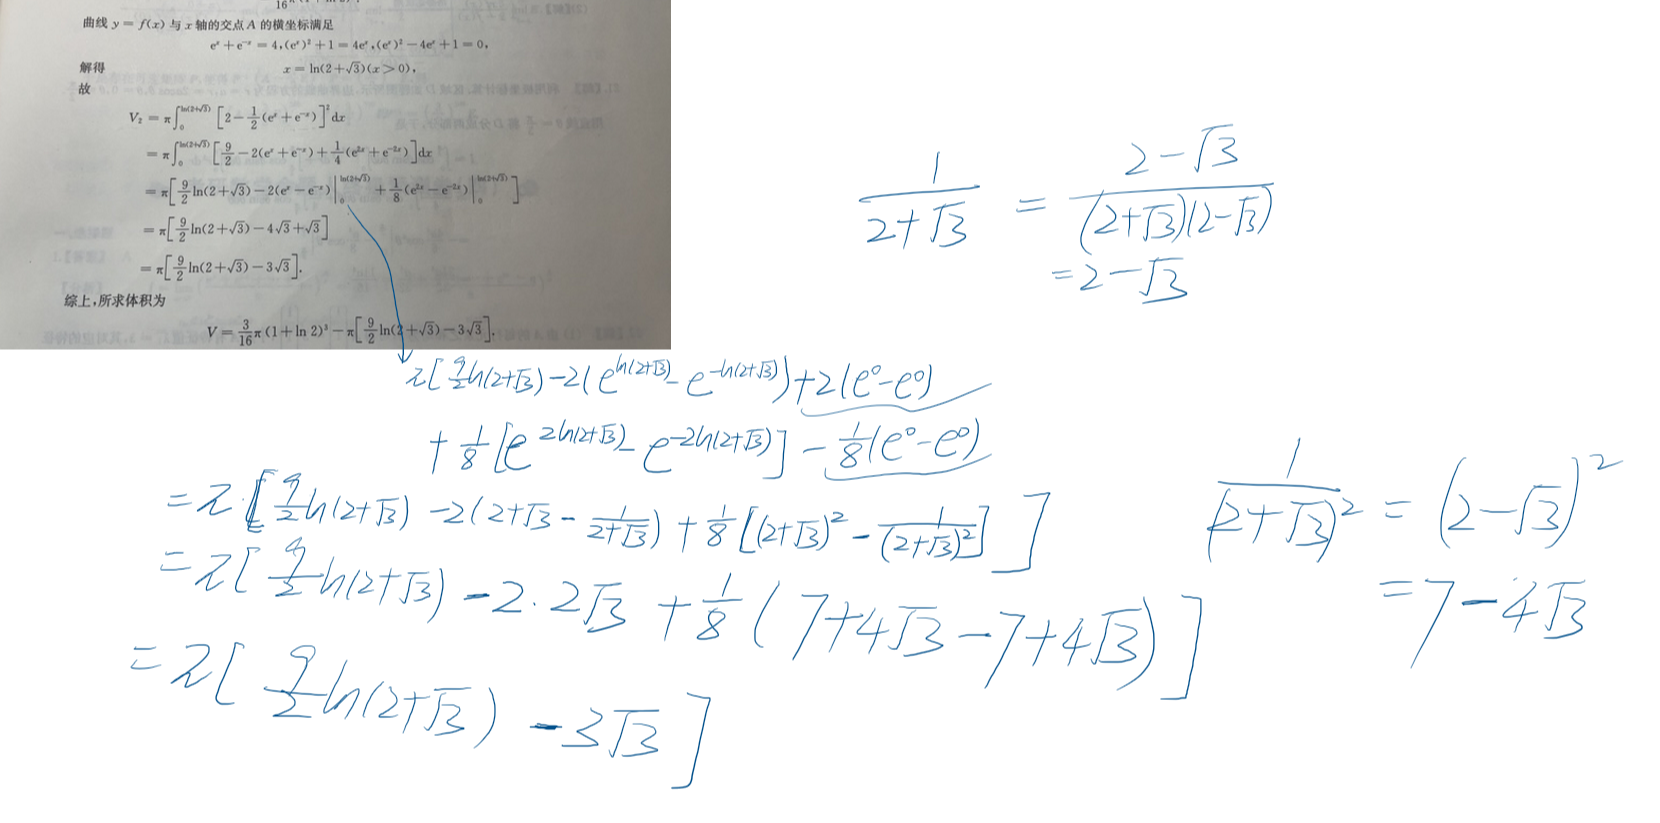 曲线 y = f(x) 与 x 轴的交点 A 的横坐标满足
eˣ + e⁻ˣ = 4, (eˣ)² + 1 = 4eˣ, (eˣ)² − 4eˣ + 1 = 0,
解得 x = ln(2+√3)(x > 0),
故
V₂ = π∫₀^{ln(2+√3)} [2 − 1/2(eˣ + e⁻ˣ)]² dx
= π∫₀^{ln(2+√3)} [9/2 − 2(eˣ + e⁻ˣ) + 1/4(e²ˣ + e⁻²ˣ)]dx
= π[9/2 ln(2+√3) − 2(eˣ − e⁻ˣ)|₀^{ln(2+√3)} + 1/8(e²ˣ − e⁻²ˣ)|₀^{ln(2+√3)}]
= π[9/2 ln(2+√3) − 4√3 + √3]
= π[9/2 ln(2+√3) − 3√3].
综上,所求体积为
V = 3/16 π(1 + ln 2)³ − π[9/2 ln(2+√3) − 3√3].
1/(2+√3) = (2−√3)/((2+√3)(2−√3))
= 2−√3
π[9/2 ln(2+√3) − 2(e^{ln(2+√3)} − e^{−ln(2+√3)}) + 2(e⁰ − e⁰)
+ 1/8[e^{2ln(2+√3)} − e^{−2ln(2+√3)}] − 1/8(e⁰ − e⁰)
= π[9/2 ln(2+√3) − 2(2+√3 − 1/(2+√3)) + 1/8[(2+√3)² − 1/(2+√3)²]]
= π[9/2 ln(2+√3) − 2·2√3 + 1/8(7+4√3−7+4√3)]
= π[9/2 ln(2+√3) − 3√3]
1/(2+√3)² = (2−√3)²
= 7−4√3